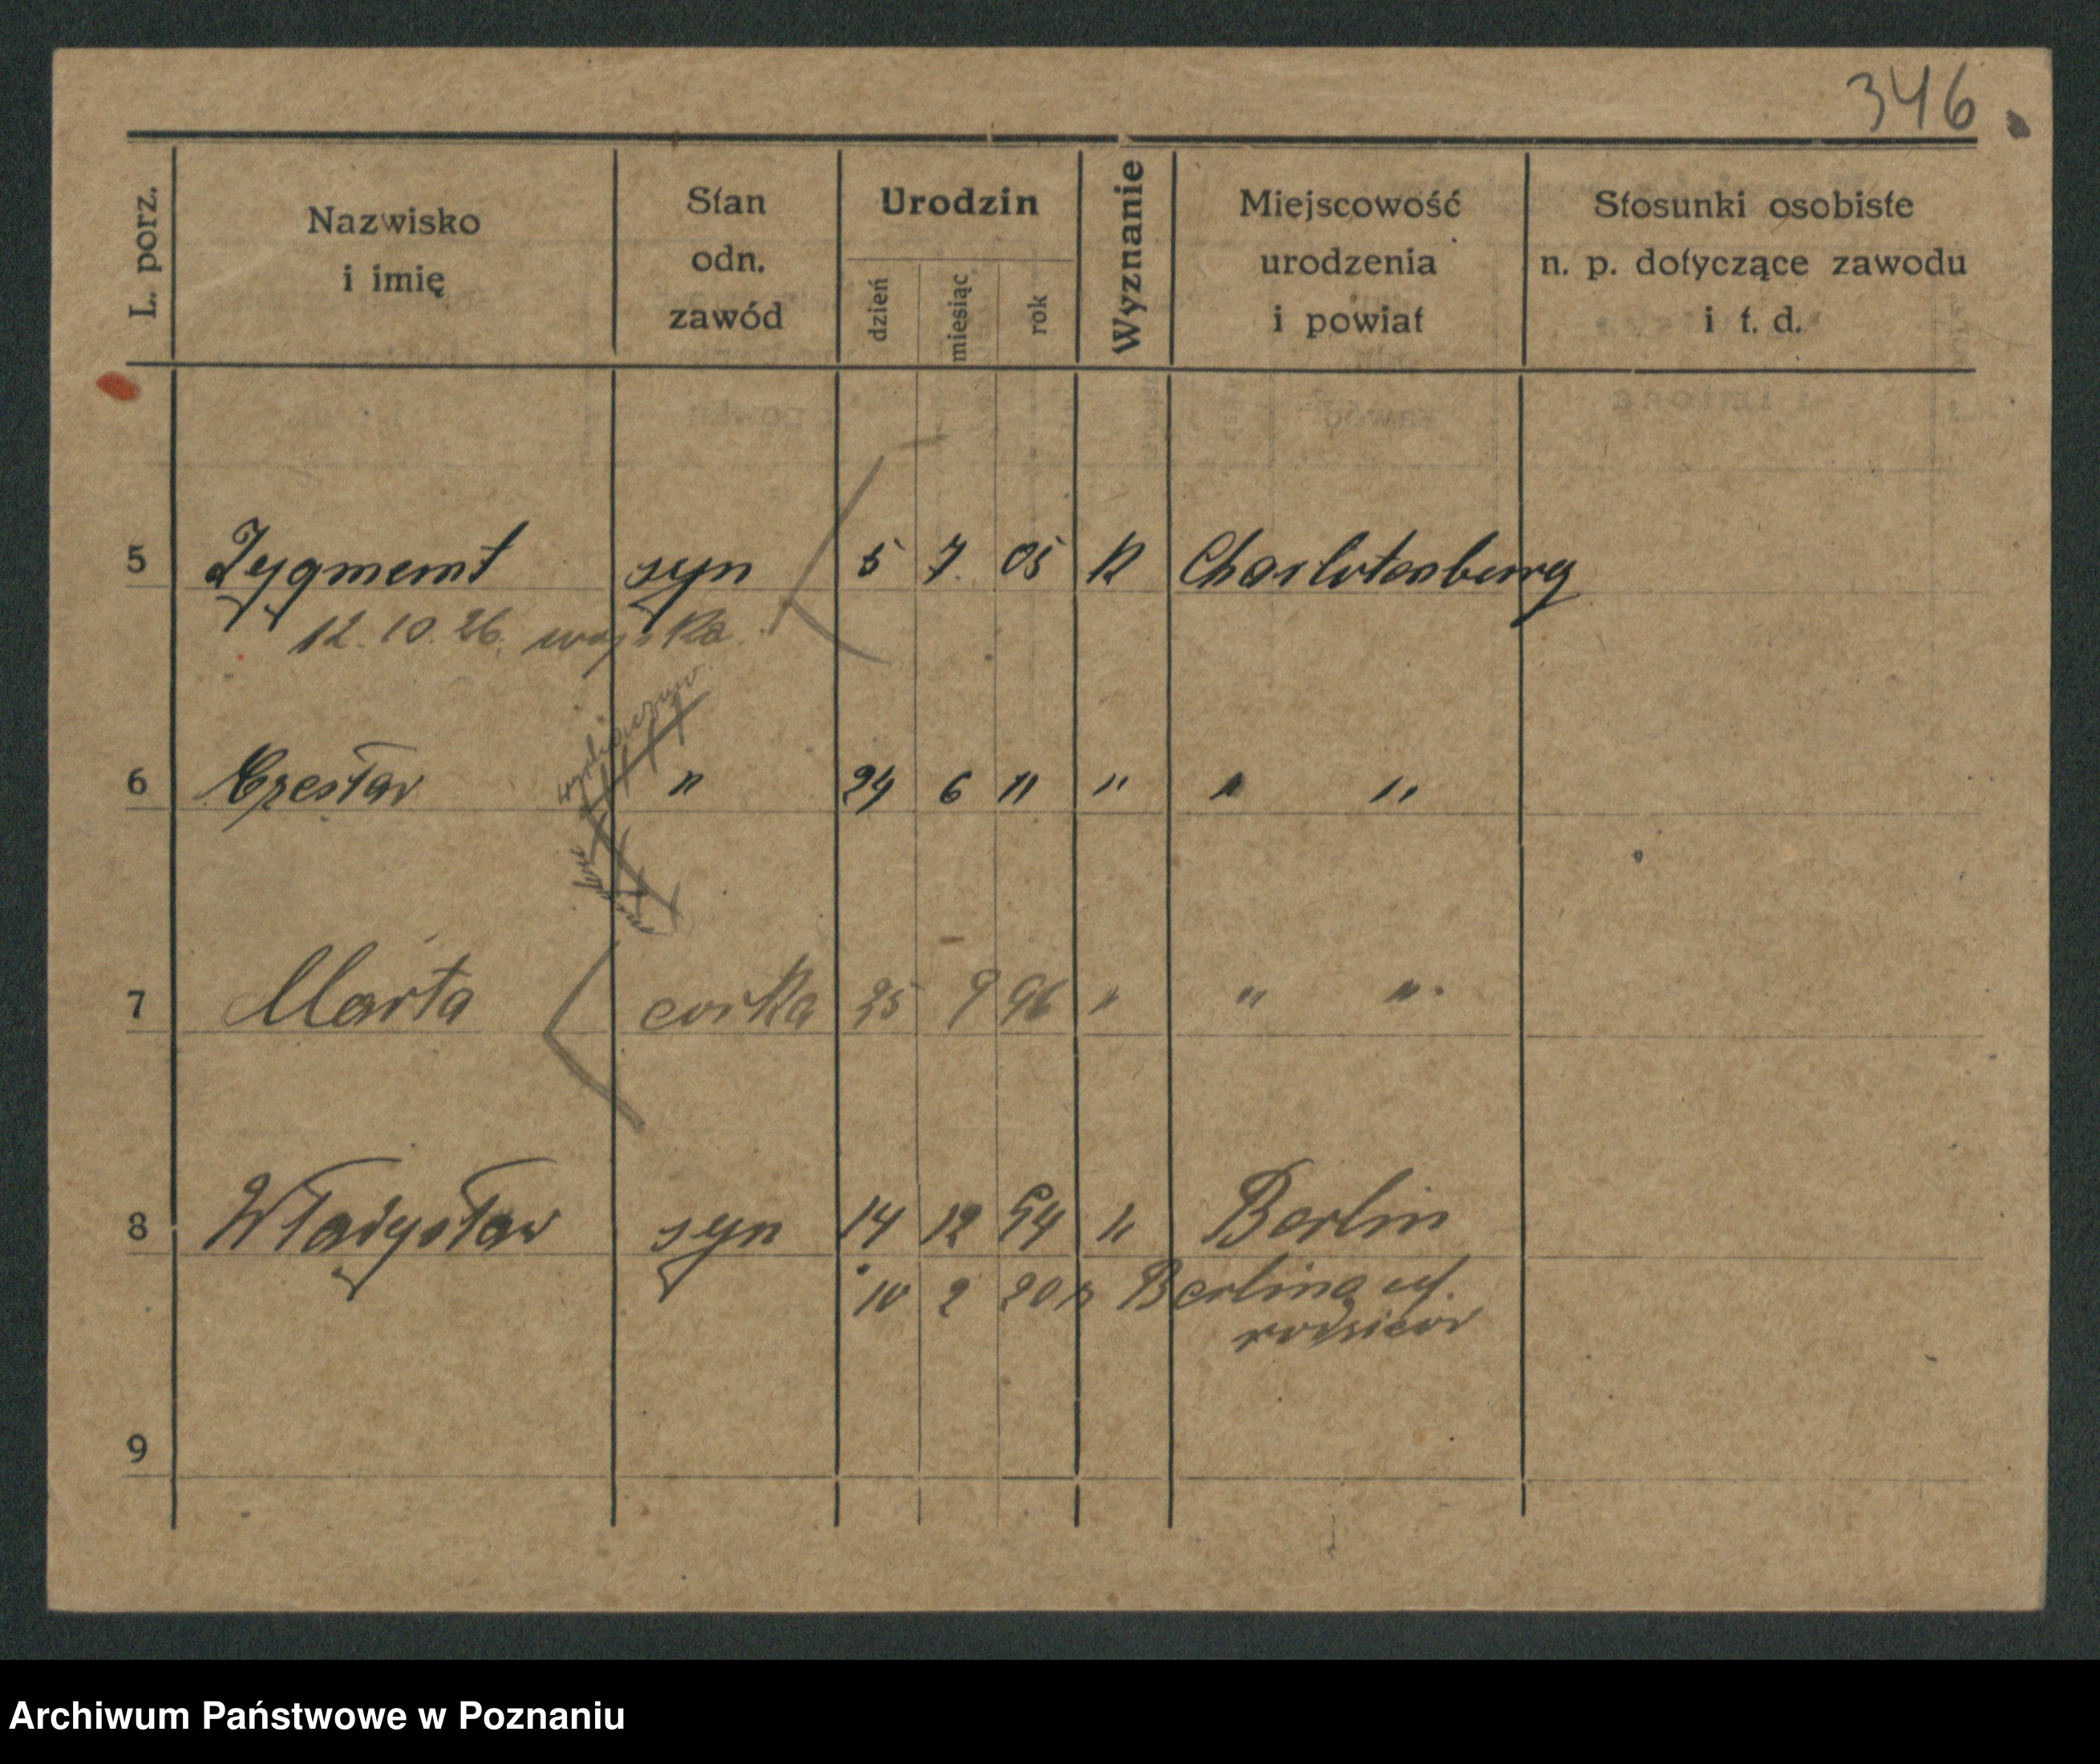 346
L. porz.
Nazwisko
i imię
Stan
odn.
zawód
Urodzin
dzień
miesiąc
rok
Wyznanie
Miejscowość
urodzenia
i powiat
Stosunki osobiste
n. p. dotyczące zawodu
i t. d.
5 Zygmemt syn 5 7. 05 R Charlotenburg
12.10.26. wojska
6 Czesław " 24 6 11 " " "
7 Marta corka 25 9 96 " " "
8 Władysław syn 14 12 94 " Berlin
10 2 20 z Berlina od.
rodzicow
9
Archiwum Państwowe w Poznaniu